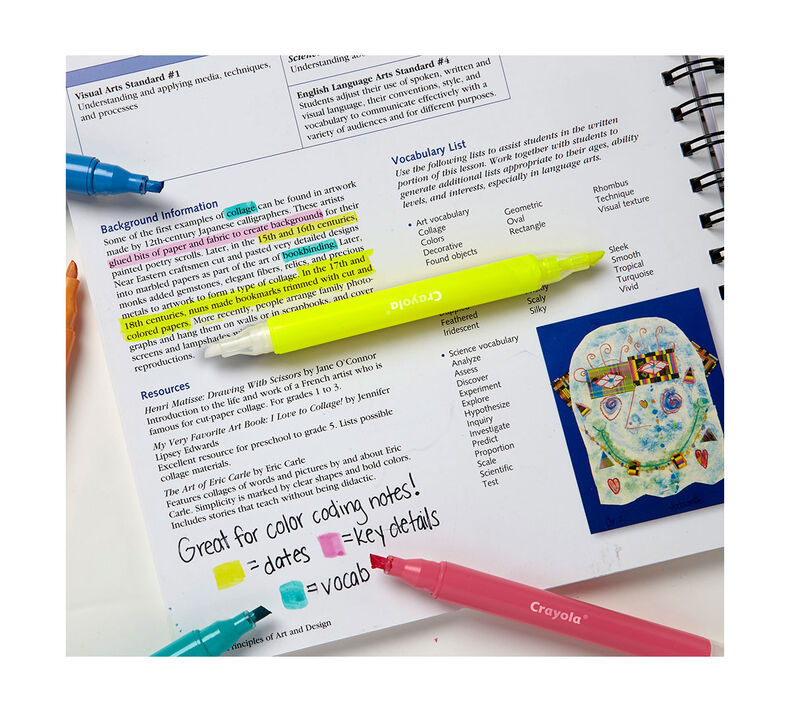 Visual Arts Standard #1
Understanding and applying media, techniques,
and processes
Understanding
English Language Arts Standard #4
Students adjust their use of spoken, written and
visual language, their conventions, style, and
vocabulary to communicate effectively with a
variety of audiences and for different purposes.
Background Information
Some of the first examples of collage can be found in artwork
made by 12th-century Japanese calligraphers. These artists
glued bits of paper and fabric to create backgrounds for their
painted poetry scrolls. Later, in the 15th and 16th centuries,
Near Eastern craftsmen cut and pasted very detailed designs
into marbled papers as part of the art of bookbinding. Later,
monks added gemstones, elegant fibers, relics, and precious
metals to artwork to form a type of collage. In the 17th and
18th centuries, nuns made bookmarks trimmed with cut and
colored papers. More recently, people arrange family photo-
graphs and hang them on walls or in scrapbooks, and cover
screens and lampshades
reproductions.
Resources
Henri Matisse: Drawing With Scissors by Jane O'Connor
Introduction to the life and work of a French artist who is
famous for cut-paper collage. For grades 1 to 3.
My Very Favorite Art Book: I Love to Collage! by Jennifer
Lipsey Edwards
Excellent resource for preschool to grade 5. Lists possible
collage materials.
The Art of Eric Carle by Eric Carle
Features collages of words and pictures by and about Eric
Carle. Simplicity is marked by clear shapes and bold colors.
Includes stories that teach without being didactic.
Great for color coding notes!
= dates =key details
=vocab
Principles of Art and Design
Vocabulary List
Use the following lists to assist students in the written
portion of this lesson. Work together with students to
generate additional lists appropriate to their ages, ability
levels, and interests, especially in language arts.
• Art vocabulary
Collage
Colors
Decorative
Found objects
Geometric
Oval
Rectangle
Rhombus
Technique
Visual texture
Feathered
Iridescent
Scaly
Silky
Sleek
Smooth
Tropical
Turquoise
Vivid
• Science vocabulary
Analyze
Assess
Discover
Experiment
Explore
Hypothesize
Inquiry
Investigate
Predict
Proportion
Scale
Scientific
Test
Crayola®
Crayola®